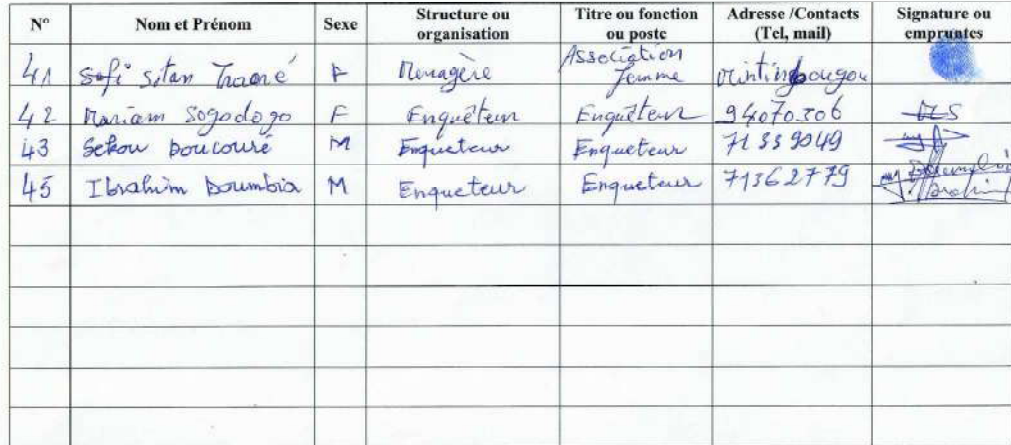 N° Nom et Prénom Sexe Structure ou organisation Titre ou fonction ou poste Adresse /Contacts (Tel, mail) Signature ou empruntes
41 Sofi Sitan Traoré F Menagère Association Femme
42 Mariam Sogodogo F Enquêteur Enquêteur 94070306
43 Sekou Doucouré M Enqueteur Enqueteur 71339049
45 Ibrahim Doumbia M Enqueteur Enqueteur 71362779